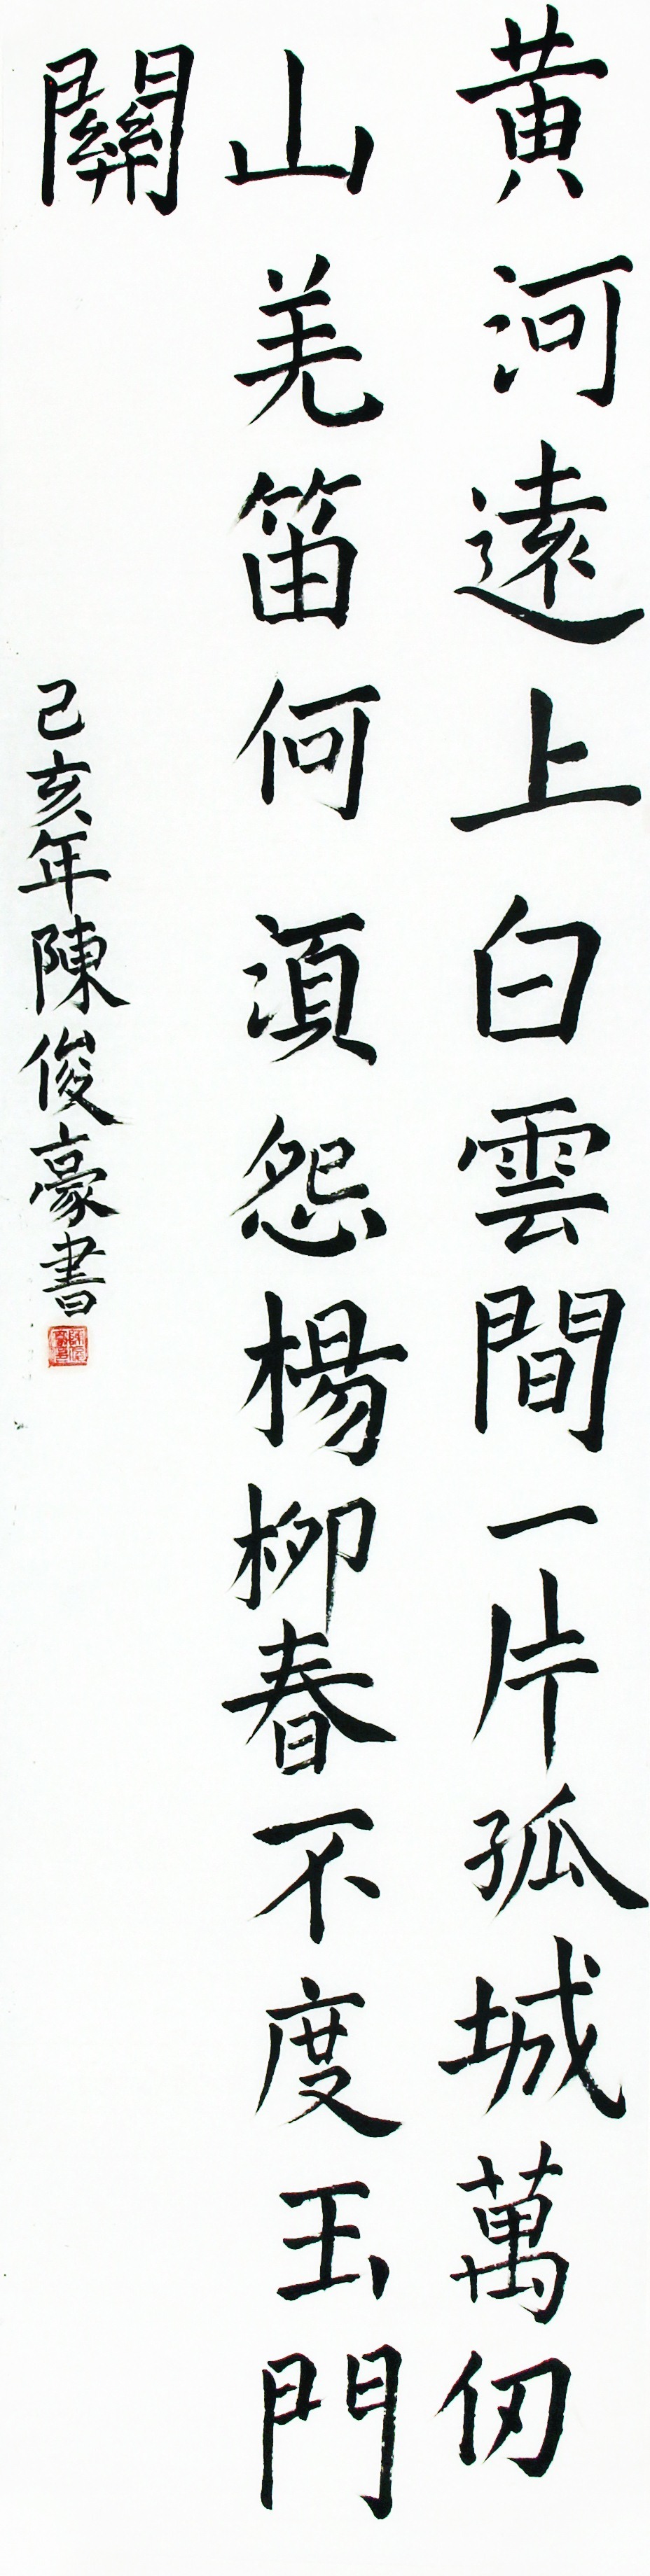 黄河遠上白雲間一片孤城萬仞
山羌笛何須怨楊柳春不度玉門
關
己亥年陳俊豪書